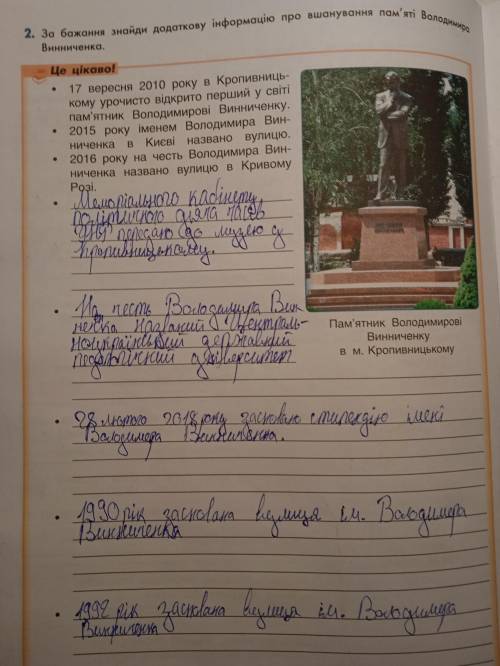 2. За бажання знайди додаткову інформацію про вшанування пам'яті Володимира
Винниченка.
Це цікаво!
• 17 вересня 2010 року в Кропивниць-
кому урочисто відкрито перший у світі
пам'ятник Володимирові Винниченку.
• 2015 року іменем Володимира Вин-
ниченка в Києві названо вулицю.
• 2016 року на честь Володимира Вин-
ниченка названо вулицю в Кривому
Розі.
• Меморіального кабінету
політичного діяча
передано до музею
• На честь Володимира Вин-
неченка названий Централь-
ноукраїнський державний
педагогічний університет
• 28 лютого 2018 року засновано стипендію імені
Володимера Винниченка.
• 1990 рік заснована вулиця ім. Володимера
Винниченка
• 1992 рік заснована вулиця ім. Володимера
Винниченка
Пам'ятник Володимирові
Винниченку
в м. Кропивницькому